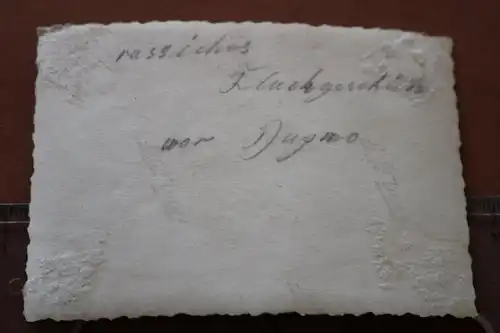 russiches
Flachgeschütz
vor Dugwo